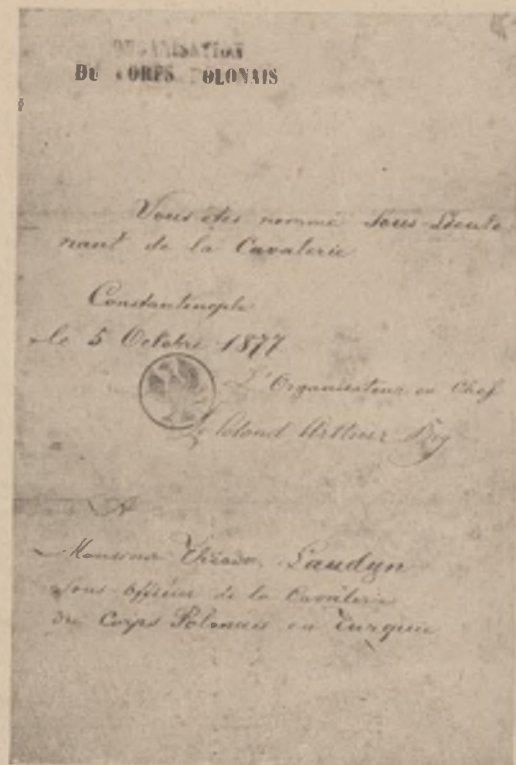 ORGANISATION
DU CORPS POLONAIS
Vous êtes nommé Sous-Lieute
nant de la Cavalerie
Constantinople
le 5 Octobre 1877
L'Organisateur en Chef
Le Colonel Arthur Bey
Monsieur Théodor Laudyn
Sous officier de la Cavalerie
du Corps Polonais en Turquie